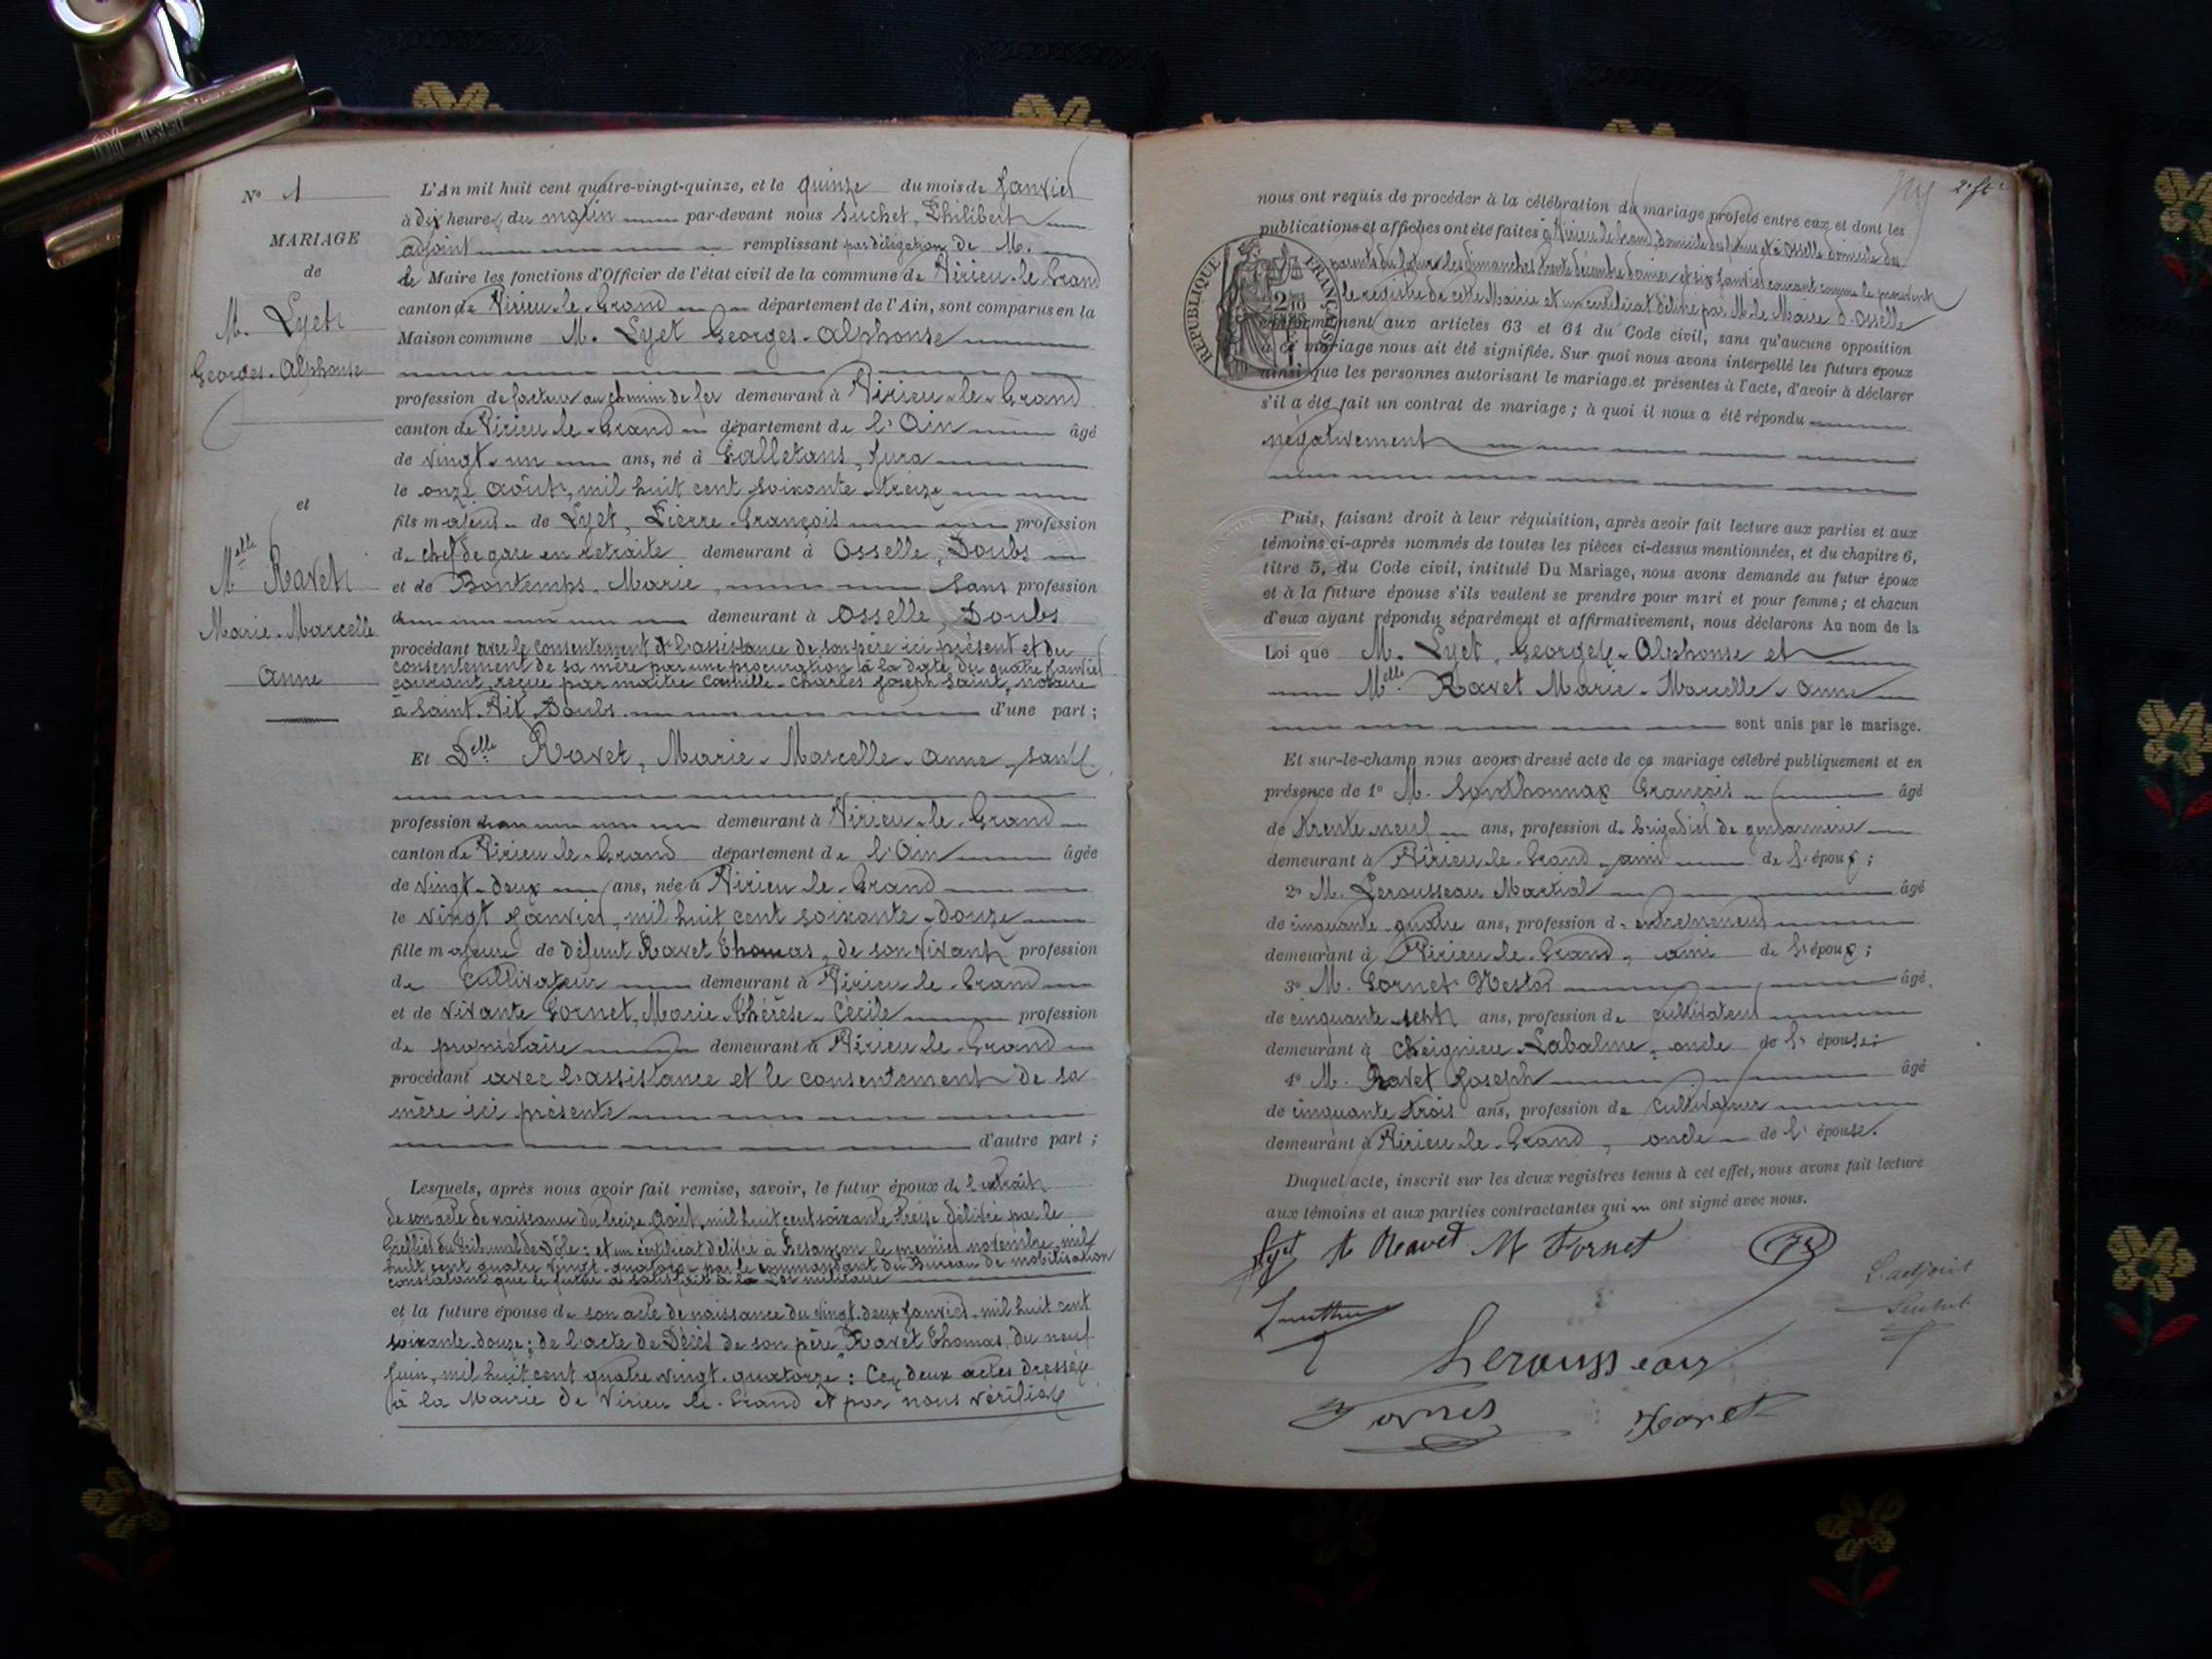 N° 1
MARIAGE
de
M. Lyet
Georges-Alphonse
et
Melle Ravet
Marie-Marcelle
Anne
L'An mil huit cent quatre-vingt-quinze, et le quinze du mois de Janvier
à dix heures du matin par-devant nous Suchet, Philibert
adjoint remplissant par délégation de M.
le Maire les fonctions d'Officier de l'état civil de la commune de Virieu-le-Grand
canton de Virieu-le-Grand département de l'Ain, sont comparus en la
Maison commune M. Lyet Georges-Alphonse
profession de facteur au chemin de fer demeurant à Virieu-le-Grand
canton de Virieu-le-Grand département de l'Ain âgé
de vingt-un ans, né à Falletans, Jura
le onze Août, mil huit cent soixante-treize
fils majeur de Lyet, Pierre-François profession
de chef de gare en retraite demeurant à Osselle, Doubs
et de Bontemps, Marie, sans profession
demeurant à Osselle, Doubs
procédant avec le consentement et l'assistance de son père ici présent et du
consentement de sa mère par une procuration à la date du quatre Janvier
courant, reçue par maître Camille-Charles Joseph Saint, notaire
à Saint-Vit, Doubs. d'une part ;
Et Delle Ravet, Marie-Marcelle-Anne, sans
profession demeurant à Virieu-le-Grand
canton de Virieu-le-Grand département de l'Ain âgée
de vingt-deux ans, née à Virieu-le-Grand
le vingt Janvier, mil huit cent soixante-douze
fille majeure de défunt Ravet Thomas, de son vivant profession
de cultivateur demeurant à Virieu-le-Grand
et de vivante Fornet, Marie-Thérèse-Cécile profession
de propriétaire demeurant à Virieu-le-Grand
procédant avec l'assistance et le consentement de sa
mère ici présente
d'autre part ;
Lesquels, après nous avoir fait remise, savoir, le futur époux de l'extrait
de son acte de naissance du treize Août, mil huit cent soixante-treize délivré par le
Greffier du Tribunal de Dôle ; et un certificat délivré à Besançon le premier novembre mil
huit cent quatre vingt-quatorze par le commandant du Bureau de mobilisation
constatant que le futur a satisfait à la Loi militaire
et la future épouse de son acte de naissance du vingt-deux Janvier mil huit cent
soixante-douze ; de l'acte de Décès de son père Ravet Thomas, du neuf
Juin, mil huit cent quatre vingt-quatorze : Ces deux actes dressés
à la Mairie de Virieu-le-Grand et par nous vérifiés
2e ft
nous ont requis de procéder à la célébration du mariage projeté entre eux et dont les
publications et affiches ont été faites à Virieu le Grand, domicile des futurs et à Osselle domicile des
parents du futur les dimanches trente décembre dernier et six Janvier courant comme le
le registre de cette Mairie et un certificat délivré par M. le Maire d'Osselle
RÉPUBLIQUE FRANÇAISE
conformément aux articles 63 et 64 du Code civil, sans qu'aucune opposition
à ce mariage nous ait été signifiée. Sur quoi nous avons interpellé les futurs époux
ainsi que les personnes autorisant le mariage et présentes à l'acte, d'avoir à déclarer
s'il a été fait un contrat de mariage ; à quoi il nous a été répondu
négativement
Puis, faisant droit à leur réquisition, après avoir fait lecture aux parties et aux
témoins ci-après nommés de toutes les pièces ci-dessus mentionnées, et du chapitre 6,
titre 5, du Code civil, intitulé Du Mariage, nous avons demandé au futur époux
et à la future épouse s'ils veulent se prendre pour mari et pour femme ; et chacun
d'eux ayant répondu séparément et affirmativement, nous déclarons Au nom de la
Loi que M. Lyet, Georges-Alphonse et
Melle Ravet Marie-Marcelle-Anne
sont unis par le mariage.
Et sur-le-champ nous avons dressé acte de ce mariage célébré publiquement et en
présence de 1° M. Sonthonnax François âgé
de trente-neuf ans, profession de brigadier de gendarmerie
demeurant à Virieu-le-Grand, ami de l'époux ;
2° M. Lerousseau Martial âgé
de cinquante-quatre ans, profession d'entrepreneur
demeurant à Virieu-le-Grand, ami de l'époux ;
3° M. Fornet Nestor âgé
de cinquante-sept ans, profession de cultivateur
demeurant à Cheignieu-Labalme, oncle de l'épouse ;
4° M. Ravet Joseph âgé
de cinquante trois ans, profession de cultivateur
demeurant à Virieu-le-Grand, oncle de l'épouse.
Duquel acte, inscrit sur les deux registres tenus à cet effet, nous avons fait lecture
aux témoins et aux parties contractantes qui ont signé avec nous.
Lyet M Ravet M Fornet
L'adjoint
Suchet
Lerousseau
Fornet Ravet